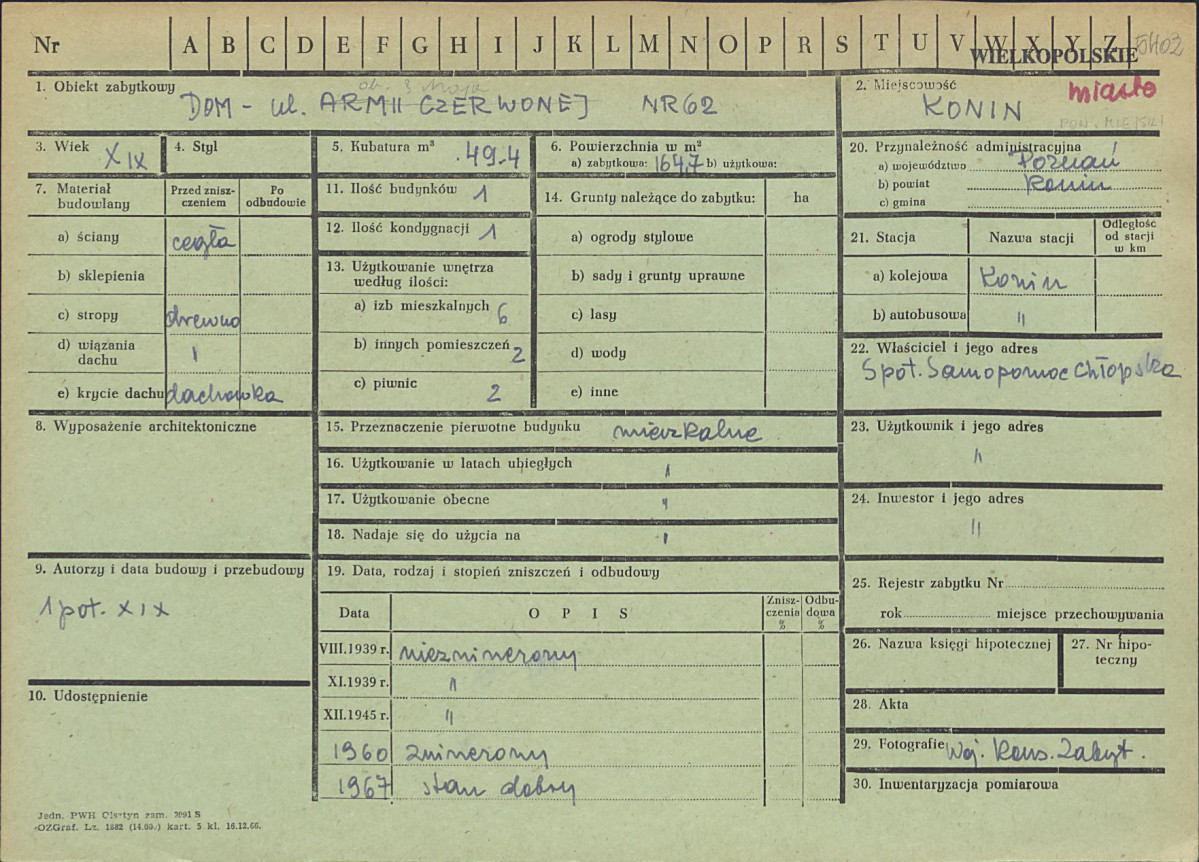 Nr A B C D E F G H I J K L M N O P R S T U V W X Y Z 5402
WIELKOPOLSKIE
1. Obiekt zabytkowy
ob. 3 Maja
DOM - ul. ARMII CZERWONEJ NR 62
2. Miejscowość
miasto
KONIN
POW. MIEJSKI
3. Wiek XIX
4. Styl
5. Kubatura m³ 494
6. Powierzchnia w m²
a) zabytkowa: 164,7 b) użytkowa:
7. Materiał budowlany
Przed znisz-
czeniem
Po
odbudowie
a) ściany cegła
b) sklepienia
c) stropy drewno
d) wiązania
dachu "
e) krycie dachu dachówka
8. Wyposażenie architektoniczne
9. Autorzy i data budowy i przebudowy
1 poł. XIX
10. Udostępnienie
11. Ilość budynków 1
12. Ilość kondygnacji 1
13. Użytkowanie wnętrza
według ilości:
a) izb mieszkalnych 6
b) innych pomieszczeń 2
c) piwnic 2
14. Grunty należące do zabytku: ha
a) ogrody stylowe
b) sady i grunty uprawne
c) lasy
d) wody
e) inne
15. Przeznaczenie pierwotne budynku mieszkalne
16. Użytkowanie w latach ubiegłych "
17. Użytkowanie obecne "
18. Nadaje się do użycia na "
19. Data, rodzaj i stopień zniszczeń i odbudowy
Data
OPIS
Znisz-
czenia
%
Odbu-
dowa
%
VIII.1939 r. niezniszczony
XI.1939 r. "
XII.1945 r. "
1960 zniszczony
1967 stan dobry
20. Przynależność administracyjna
a) województwo Poznań
b) powiat Konin
c) gmina
21. Stacja
Nazwa stacji
Odległość
od stacji
w km
a) kolejowa Konin
b) autobusowa "
22. Właściciel i jego adres
Spół. Samopomoc Chłopska
23. Użytkownik i jego adres
"
24. Inwestor i jego adres
"
25. Rejestr zabytku Nr
rok miejsce przechowywania
26. Nazwa księgi hipotecznej
27. Nr hipo-
teczny
28. Akta
29. Fotografie Woj. Kons. Zabyt.
30. Inwentaryzacja pomiarowa
Jedn. PWH Olsztyn zam. 2091 S
OZGraf. Lz. 1882 (14.00.) kart. 5 kl. 16.12.66.